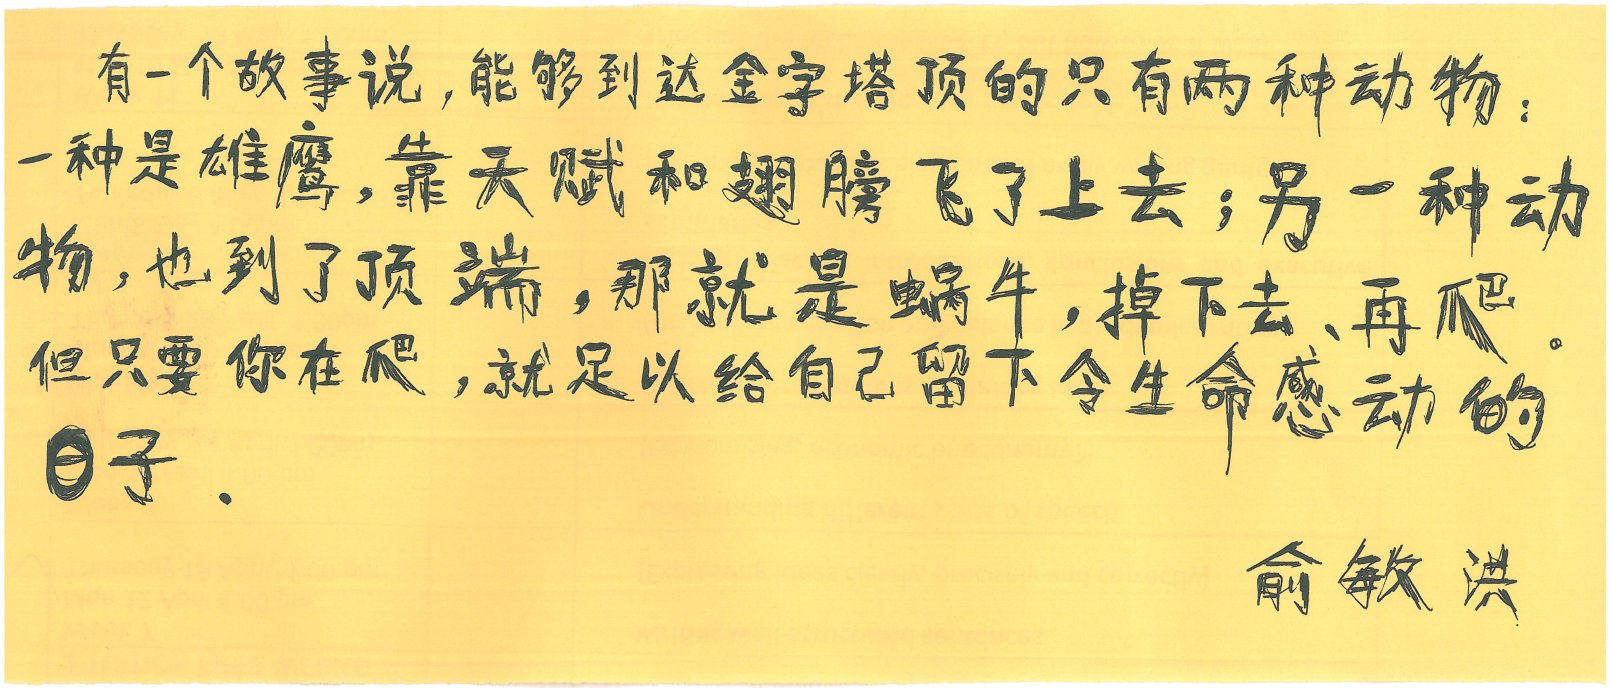 有一个故事说,能够到达金字塔顶的只有两种动物:
一种是雄鹰,靠天赋和翅膀飞了上去;另一种动
物,也到了顶端,那就是蜗牛,掉下去、再爬。
但只要你在爬,就足以给自己留下令生命感动的
日子.
俞敏洪